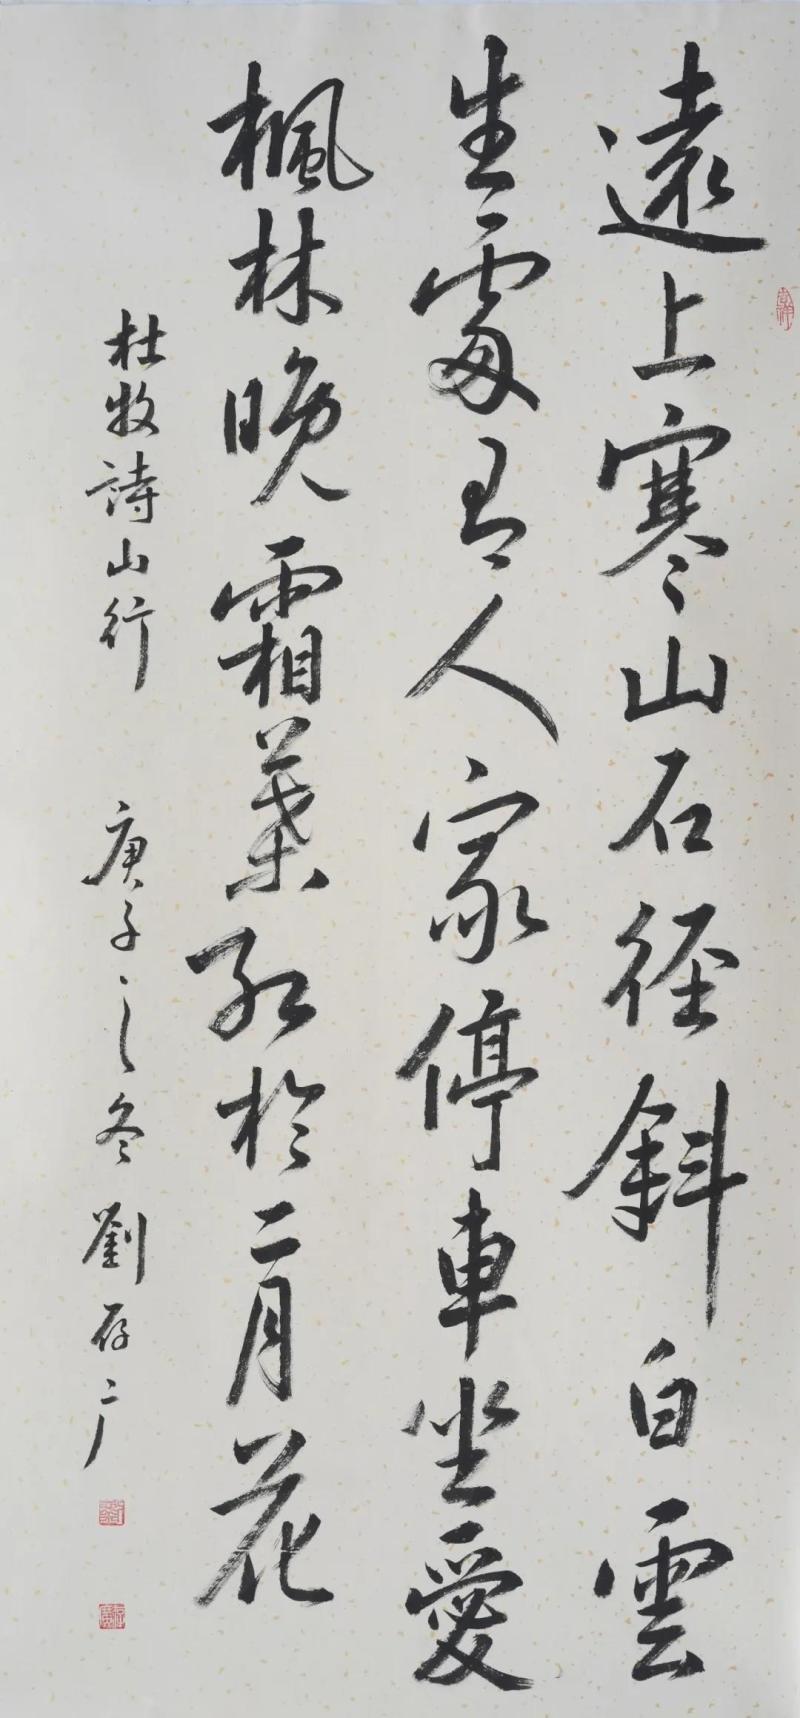 遠上寒山石徑斜白雲
生處有人家停車坐愛
楓林晚霜葉紅於二月花
杜牧詩山行 庚子之冬 劉存广